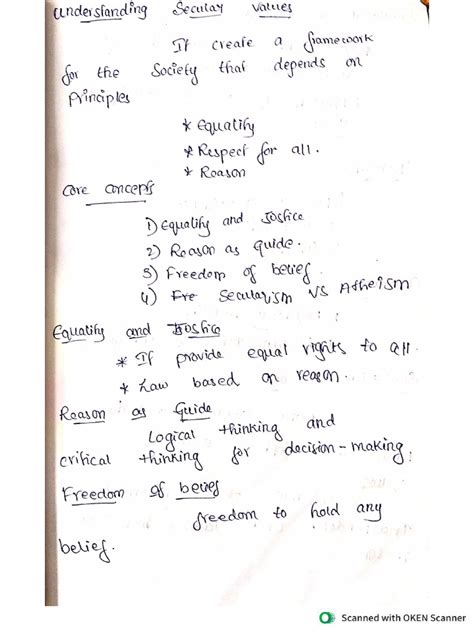 Understanding Secular values
It create a framework
for the Society that depends on
Principles
* Equality
* Respect for all.
* Reason
Core concepts
1) Equality and Jostice
2) Reason as guide.
3) Freedom of belief
4) Fre Secularism VS Atheism
Equality and Jostice
* It provide equal rights to all.
* Law based on reason.
Reason as Guide
Logical thinking and
critical thinking for decision-making.
Freedom of belief
freedom to hold any
belief.
Scanned with OKEN Scanner